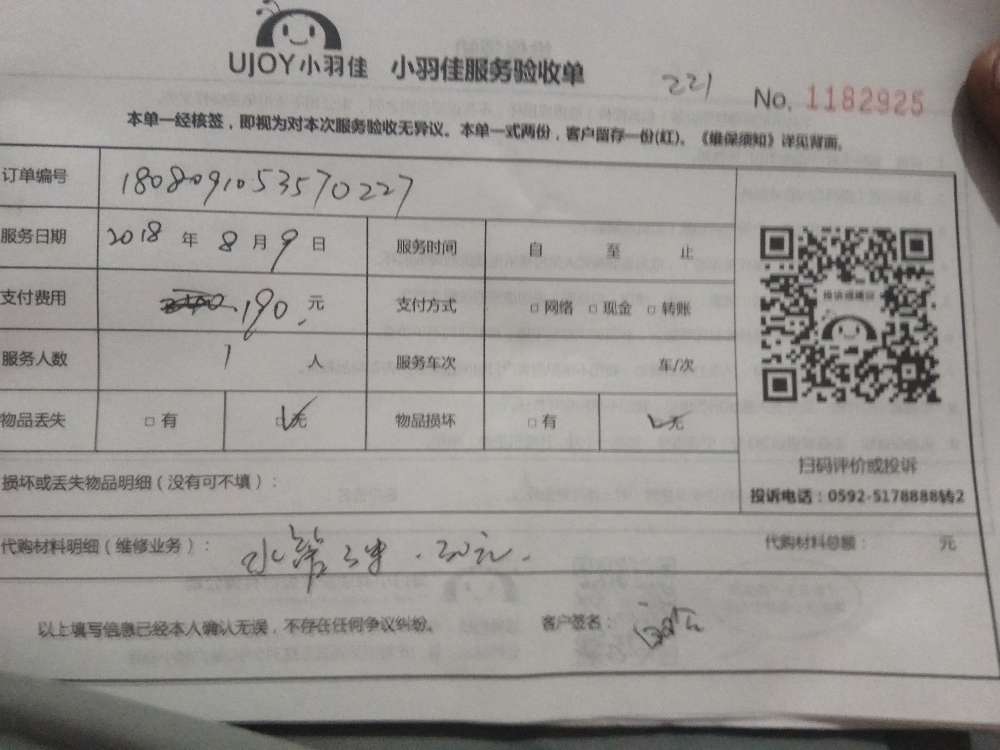 UJOY小羽佳 小羽佳服务验收单
221
No. 1182925
本单一经核签，即视为对本次服务验收无异议。本单一式两份，客户留存一份(红)。《维保须知》详见背面。
订单编号 1808091053570227
服务日期 2018 年 8 月 9 日 服务时间 自 至 止
支付费用 190 元 支付方式 □网络 □现金 □转账
服务人数 1 人 服务车次 车/次
物品丢失 □有 □无 物品损坏 □有 □无
扫码评价或投诉
投诉电话：0592-5178888转2
损坏或丢失物品明细（没有可不填）：
代购材料明细（维修业务）： 水管 30元. 代购材料总额： 元
以上填写信息已经本人确认无误，不存在任何争议纠纷。 客户签名：